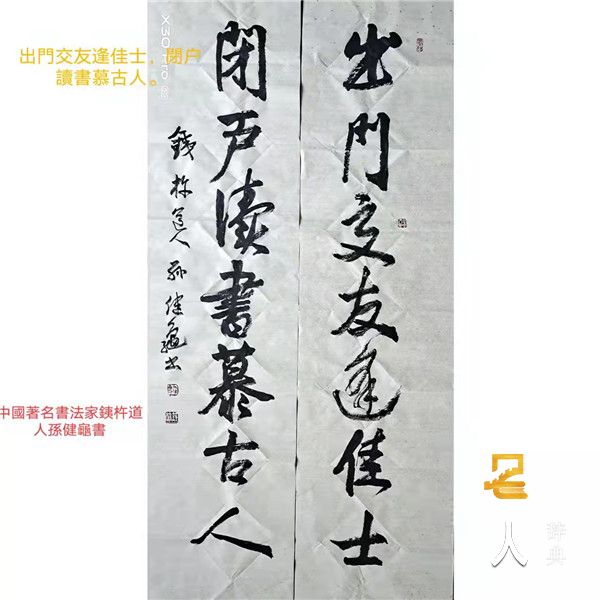 出門交友逢佳士，閉户
讀書慕古人。
出門交友逢佳士
閉户讀書慕古人
銕杵道人孫健龜書
中國著名書法家銕杵道
人孫健龜書
人
辞典